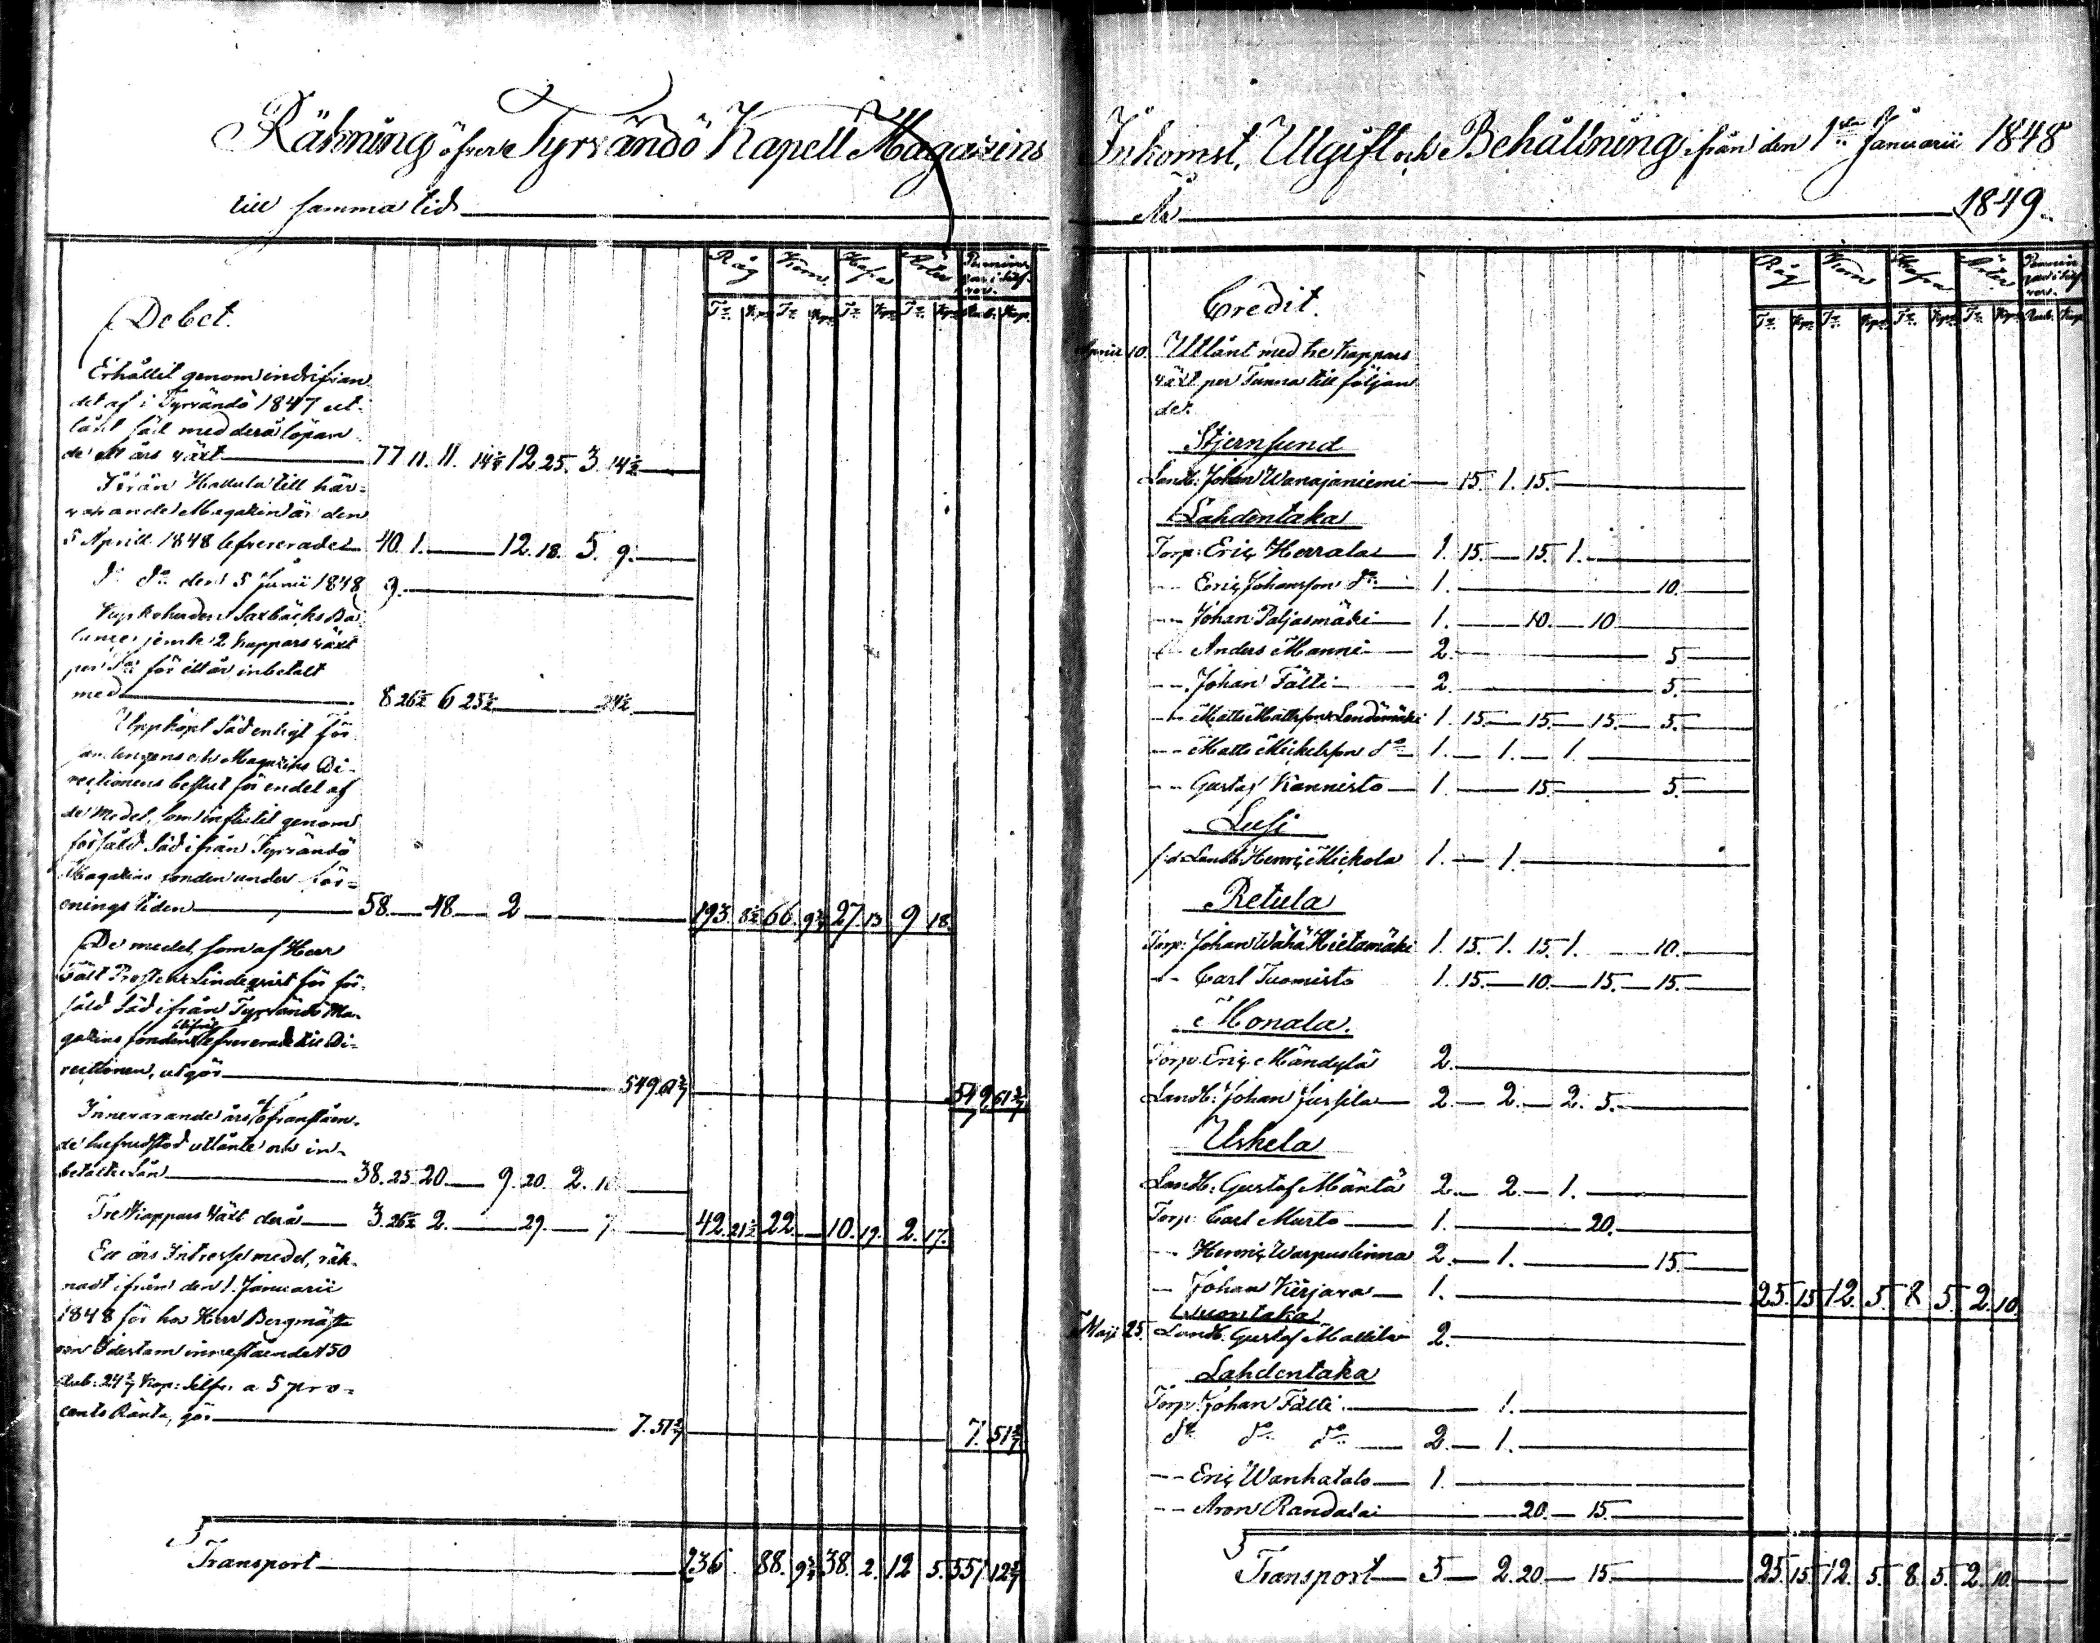 Räkning öfver Tyrvändö Kapell Magazins
till samma tid
Råg Korn Hafra Ärter Penningar i silfver.
Tr Kpr Tr Kpr Tr Kpr Tr Kpr Rub. Kop.
Debet.
Erhållit genom indrifvan
det af i Tyrvändö 1847 ut-
lånt säd med derå löpan
de ett års växt 77 11. 11. 14½ 12 25. 3. 14½
Ifrån Hattula till när-
varande Magazin är den
5 Aprill 1848 lefvererade 40. 1. 12. 18. 5. 9.
Do do den 5 Junii 1848 9.
Saxbäcks Ba
lance jemte 2 kappars växt
per Tna för ett år inbetalt
med 8 26½ 6 25½ 24½
Uppköpt säd enligt för
samlingens och Magazins Di-
rectionens beslut för en del af
de medel, som influtit genom
försåld säd ifrån Tyrvändö
Magazins fonden under för-
eningstiden 58. 48. 2 193. 8½ 66. 9¾ 27. 13 9 18.
De medel, som af Herr
Fält Prosten Lindeqvist för för-
såld säd ifrån Tyrvändö Ma-
gazins fonden blifvit lefvererade till Di-
rectionen, utgör 549 61 3/7 549. 61 3/7
Innevarande års ofvanståen-
de hufvudstod utlånte och in-
betalte Lån 38. 25. 20 9. 20. 2. 10
Tre Kappars växt derå 3. 26½ 2. 29. 7. 42. 21½ 22. 10. 19. 2. 17.
Ett års Intresse medel, räk-
nadt ifrån den 1. Januarii
1848 för hos Herr Bergmäste
ren Idestam innestående 150
Rub. 24 2/7 Kop. Silfr. a 5 pro-
cents Ränta, gör 7. 51 2/7 7. 51 2/7
Transport 236 88. 9¾ 38. 2. 12 5. 557 12 5/7
Inkomst, Utgift och Behållning ifrån den 1ste Januarii 1848
År 1849.
Råg Korn Hafra Ärter Penningar i silfver.
Tr Kpr Tr Kpr Tr Kpr Tr Kpr Rub. Kop.
Credit.
Aprill 10. Utlånt med tre kappars
växt per Tunna till följan
de:
Stjernsund
Landb: Johan Wanajaniemi 15. 1. 15.
Lahdentaka
Torp: Eric Herrala 1. 15. 15. 1.
-- Eric Johansson do 1. 10.
-- Johan Paljasmäki 1. 10. 10
-- Anders Manni 2. 5
-- Johan Fälti 2. 5.
-- Matts Mattsson Lendömäki 1. 15. 15. 15. 5.
-- Matts Mickelsson do 1. 1. 1.
-- Gustaf Kannisto 1. 15. 5.
Lusi
f.d. Landb Henric Mickola 1. 1.
Retula
Torp: Johan Wähä Hietamäki 1. 15. 1. 15. 1. 10.
-- Carl Tuomisto 1. 15. 10. 15. 15.
Monala.
Torp: Eric Mändylä 2.
Landb: Johan Jussila 2. 2. 2. 5.
Uskela
Landb: Gustaf Mäntä 2. 2. 1.
Torp: Carl Murto 1. 20.
-- Henric Warpuslinna 2. 1. 15.
-- Johan Kirjava 1. 25. 15 12. 5. 8 5. 2. 10
Suontaka
Maji 25. Landb. Gustaf Mattila 2.
Lahdentaka
Torp: Johan Fälti 1.
do do do 2. 1.
-- Eric Wanhatalo 1.
-- Aron Randalai 20. 15.
Transport 5 2. 20 15. 25. 15. 12. 5. 8. 5. 2. 10.